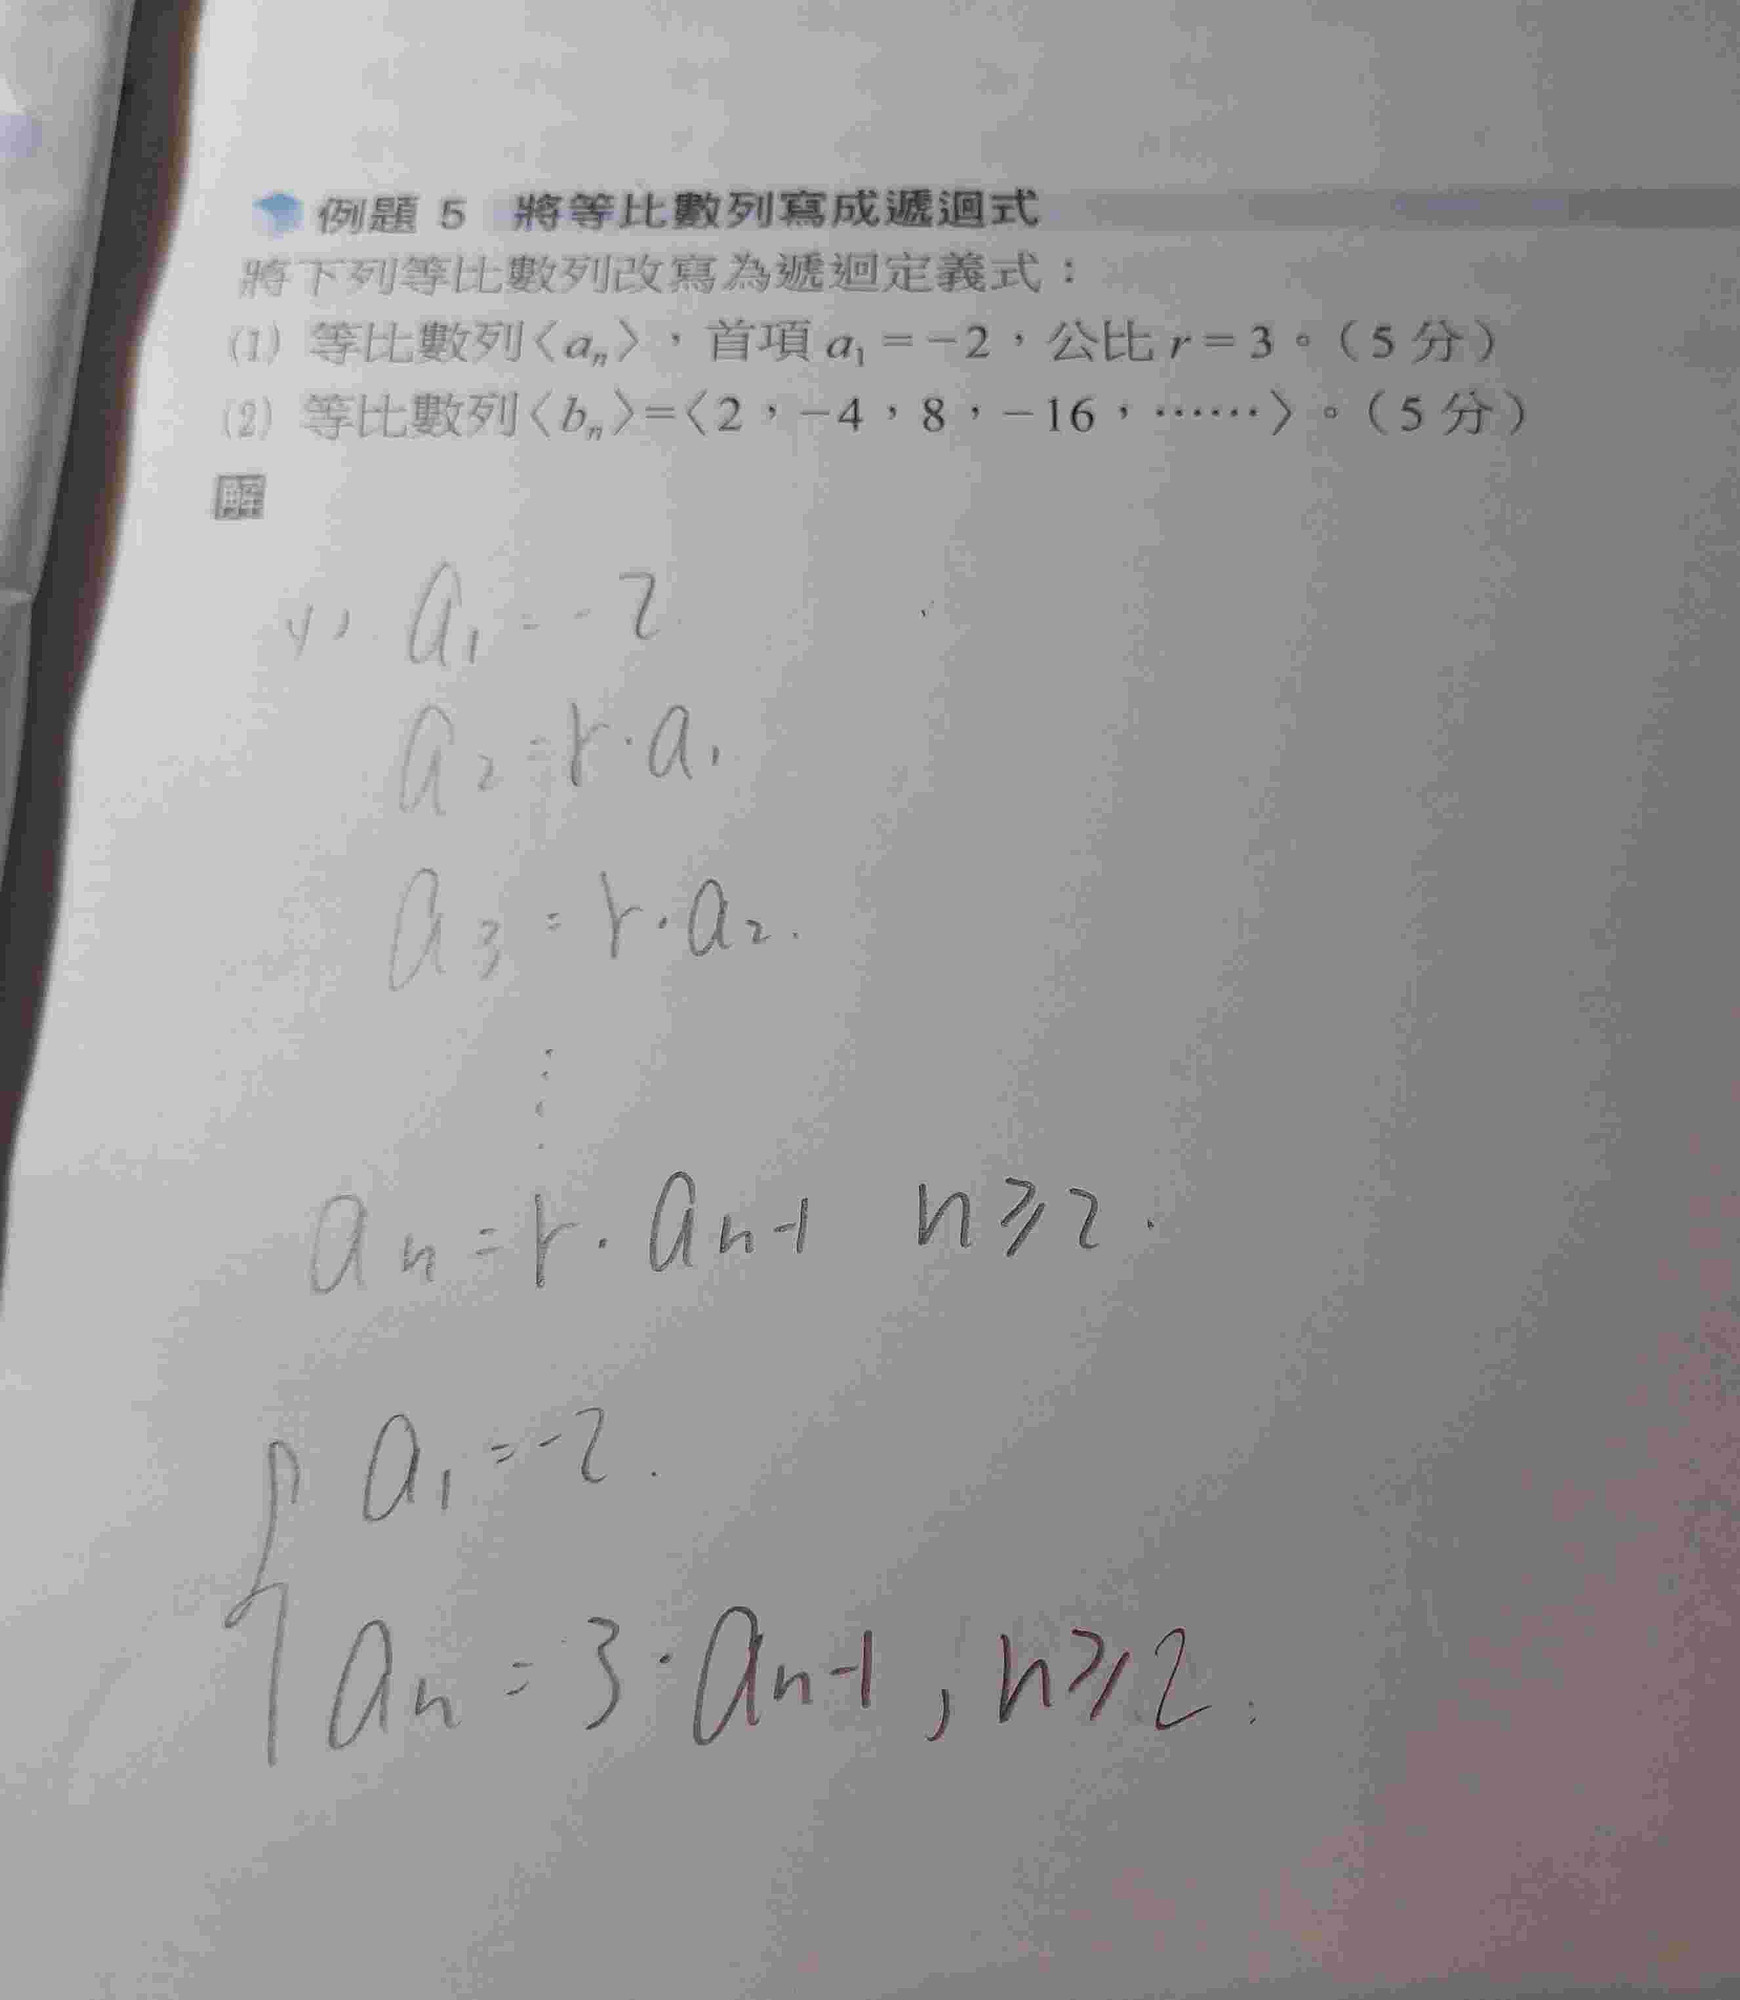 例題 5 將等比數列寫成遞迴式
將下列等比數列改寫為遞迴定義式：
(1) 等比數列〈aₙ〉，首項 a₁ = −2，公比 r = 3。（5 分）
(2) 等比數列〈bₙ〉=〈2，−4，8，−16，……〉。（5 分）
解
(1) a₁ = -2
a₂ = r · a₁
a₃ = r · a₂.
⋮
aₙ = r · aₙ₋₁ n ⩾ 2.
{ a₁ = -2.
aₙ = 3 · aₙ₋₁ , n ⩾ 2.